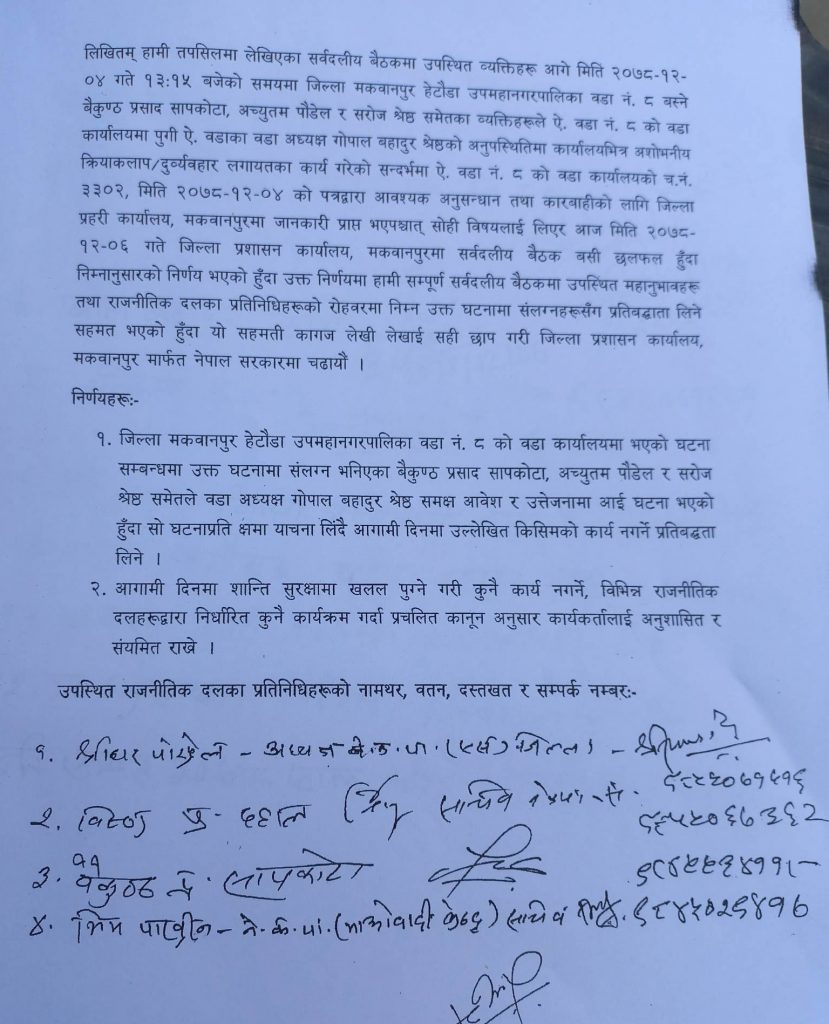 लिखितम् हामी तपसिलमा लेखिएका सर्वदलीय बैठकमा उपस्थित व्यक्तिहरू आगे मिति २०७८-१२-
०४ गते १३:१५ बजेको समयमा जिल्ला मकवानपुर हेटौडा उपमहानगरपालिका वडा नं. ८ बस्ने
बैकुण्ठ प्रसाद सापकोटा, अच्युतम पौडेल र सरोज श्रेष्ठ समेतका व्यक्तिहरूले ऐ. वडा नं. ८ को वडा
कार्यालयमा पुगी ऐ. वडाका वडा अध्यक्ष गोपाल बहादुर श्रेष्ठको अनुपस्थितिमा कार्यालयभित्र अशोभनीय
क्रियाकलाप/दुर्व्यवहार लगायतका कार्य गरेको सन्दर्भमा ऐ. वडा नं. ८ को वडा कार्यालयको च.नं.
३३०२, मिति २०७८-१२-०४ को पत्रद्वारा आवश्यक अनुसन्धान तथा कारबाहीको लागि जिल्ला
प्रहरी कार्यालय, मकवानपुरमा जानकारी प्राप्त भएपश्चात् सोही विषयलाई लिएर आज मिति २०७८-
१२-०६ गते जिल्ला प्रशासन कार्यालय, मकवानपुरमा सर्वदलीय बैठक वसी छलफल हुँदा
निम्नानुसारको निर्णय भएको हुँदा उक्त निर्णयमा हामी सम्पूर्ण सर्वदलीय बैठकमा उपस्थित महानुभावहरू
तथा राजनीतिक दलका प्रतिनिधिहरूको रोहवरमा निम्न उक्त घटनामा संलग्नहरूसँग प्रतिबद्धाता लिने
सहमत भएको हुँदा यो सहमती कागज लेखी लेखाई सही छाप गरी जिल्ला प्रशासन कार्यालय,
मकवानपुर मार्फत नेपाल सरकारमा चढायौ ।
निर्णयहरू:-
१. जिल्ला मकवानपुर हेटौडा उपमहानगरपालिका वडा नं. ८ को वडा कार्यालयमा भएको घटना
सम्बन्धमा उक्त घटनामा संलग्न भनिएका बैकुण्ठ प्रसाद सापकोटा, अच्युतम पौडेल र सरोज
श्रेष्ठ समेतले वडा अध्यक्ष गोपाल बहादुर श्रेष्ठ समक्ष आवेश र उत्तेजनामा आई घटना भएको
हुँदा सो घटनाप्रति क्षमा याचना लिंदै आगामी दिनमा उल्लेखित किसिमको कार्य नगर्ने प्रतिबद्धता
लिने ।
२. आगामी दिनमा शान्ति सुरक्षामा खलल पुग्ने गरी कुनै कार्य नगर्ने, विभिन्न राजनीतिक
दलहरूद्वारा निर्धारित कुनै कार्यक्रम गर्दा प्रचलित कानून अनुसार कार्यकर्तालाई अनुशासित र
संयमित राखे ।
उपस्थित राजनीतिक दलका प्रतिनिधिहरूको नामथर, वतन, दस्तखत र सम्पर्क नम्बर:-
१. श्रीधर पोख्रेल - अध्यक्ष ने.क.पा. (एस) जिल्ला -
२. विष्णु प्र. दहाल सचिव
३. वैकुण्ठ प्र. सापकोटा
४. भिम पाख्रीन - ने.क.पा. (माओवादी केन्द्र) सचिव